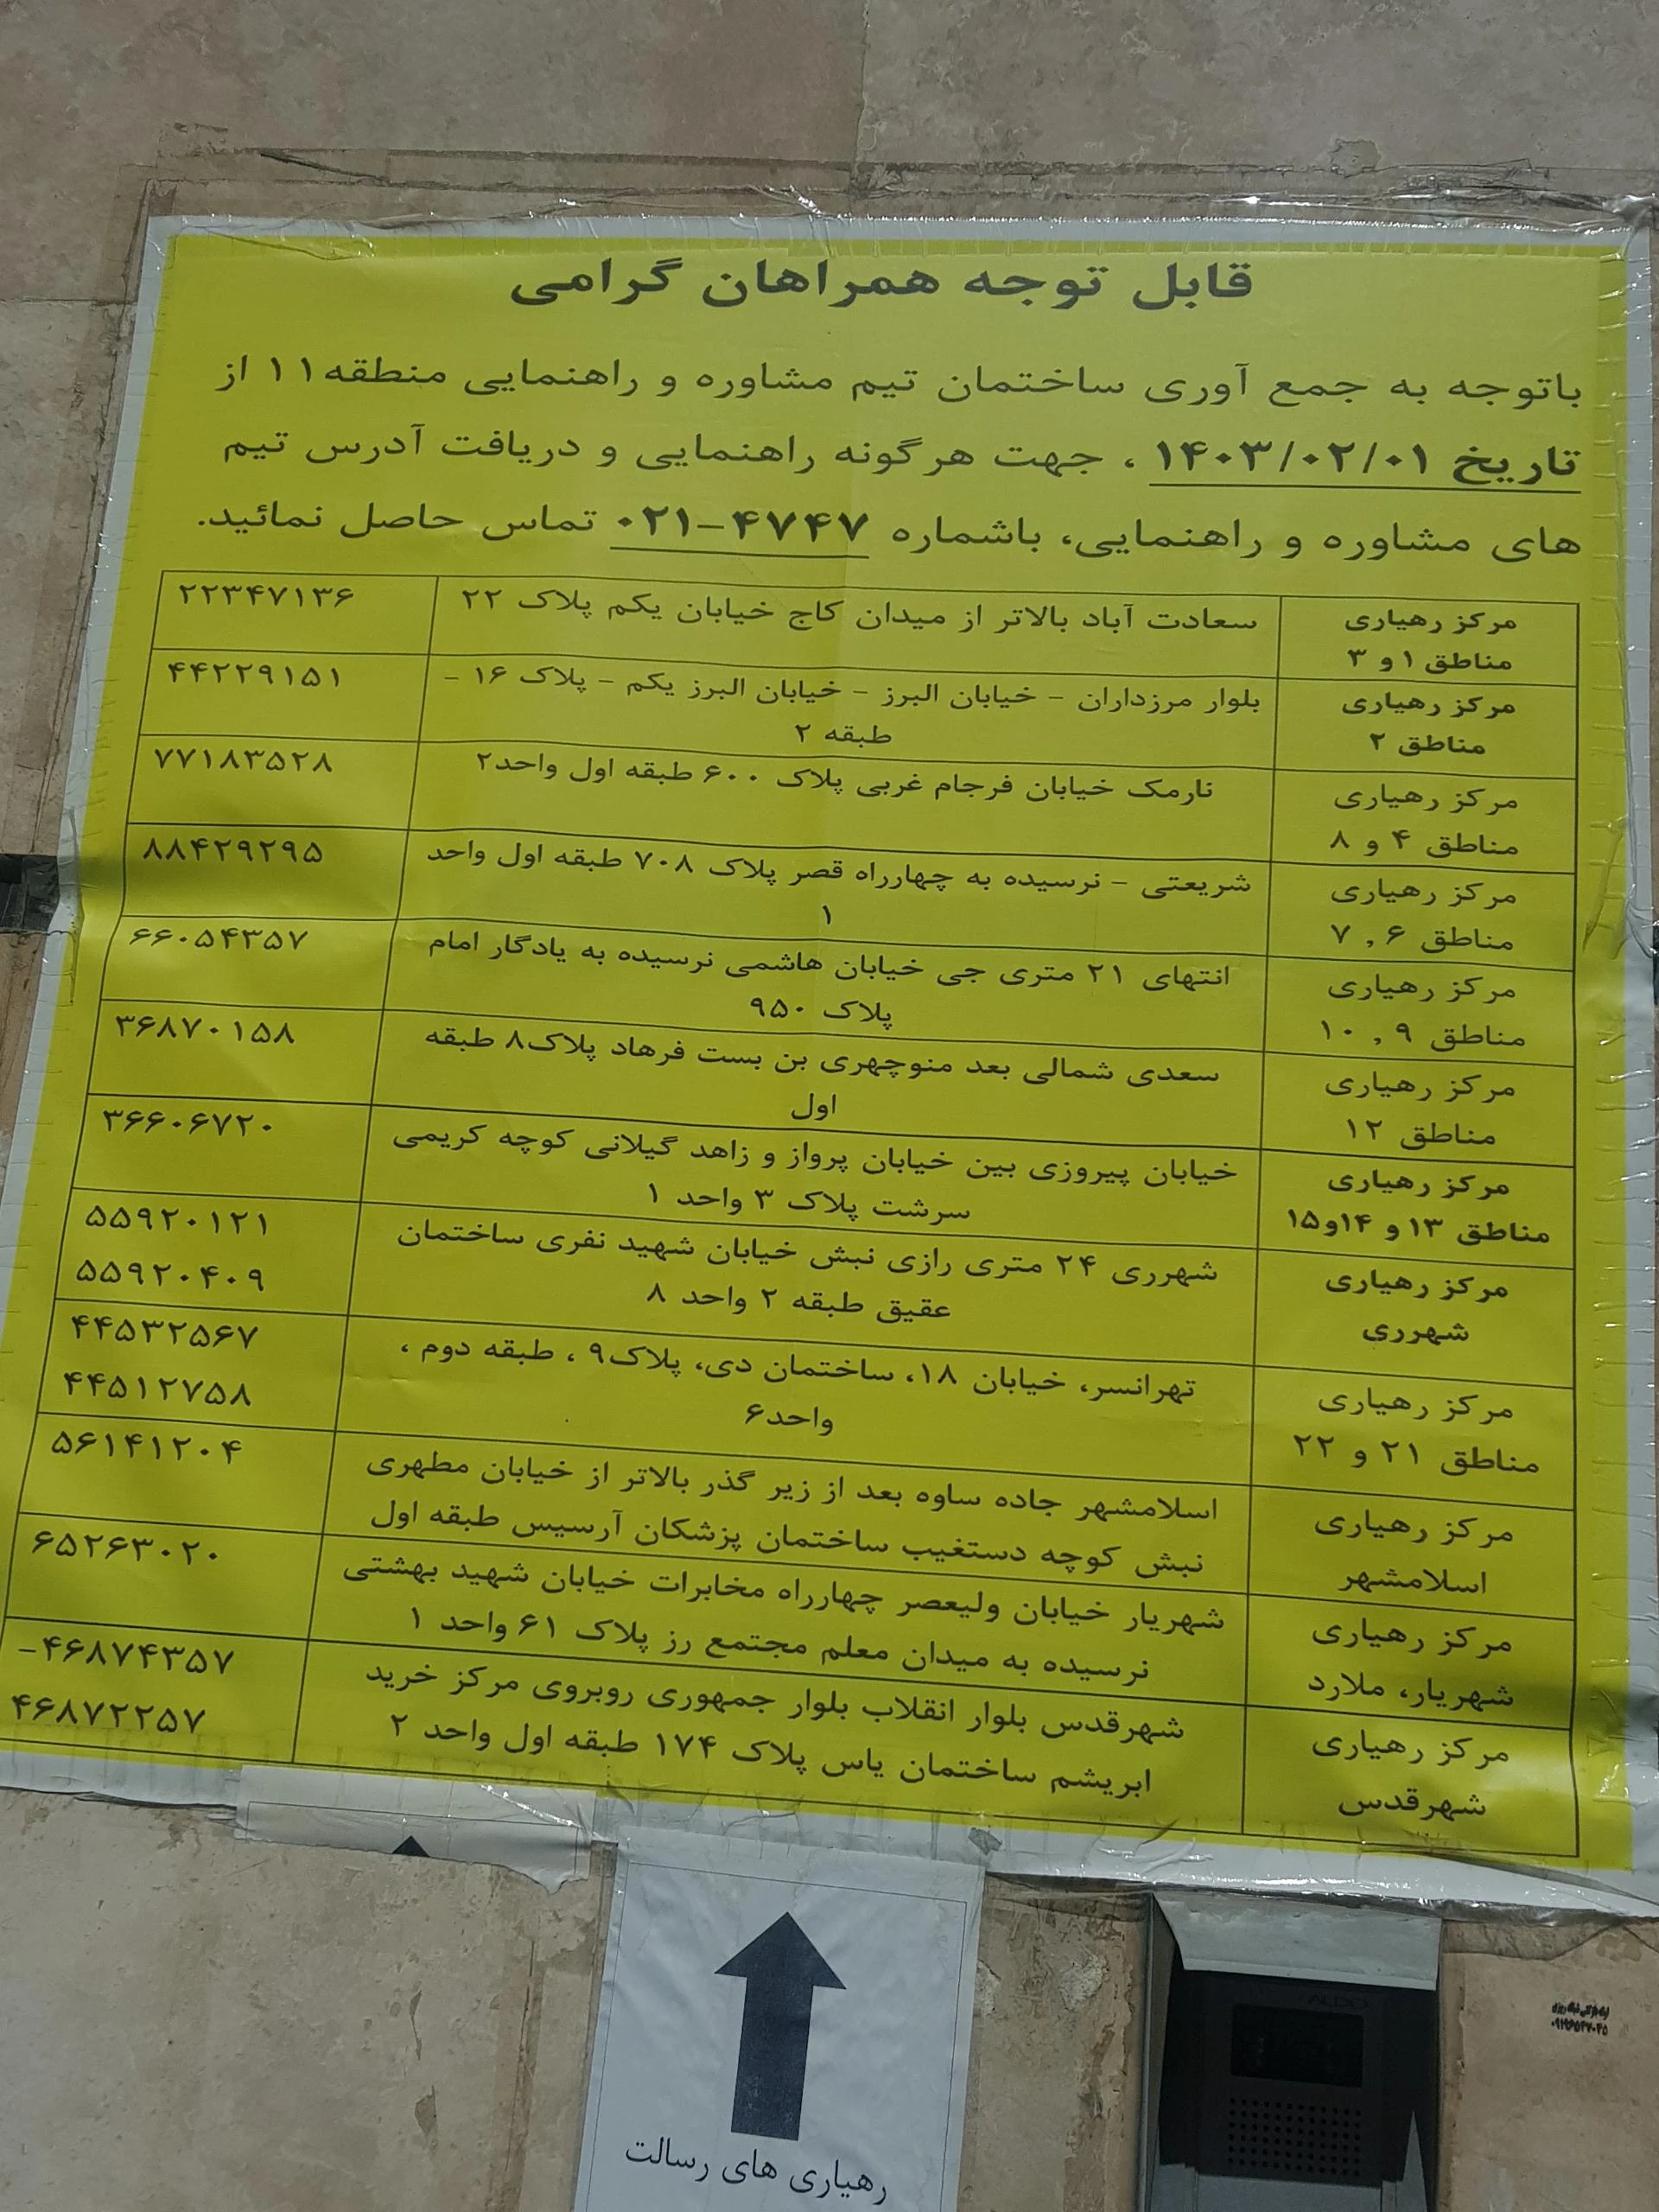 قابل توجه همراهان گرامی
باتوجه به جمع آوری ساختمان تیم مشاوره و راهنمایی منطقه۱۱ از
تاریخ ۱۴۰۳/۰۲/۰۱ ، جهت هرگونه راهنمایی و دریافت آدرس تیم
های مشاوره و راهنمایی، باشماره ۴۷۴۷-۰۲۱ تماس حاصل نمائید.
مرکز رهیاری
مناطق ۱ و ۳
سعادت آباد بالاتر از میدان کاج خیابان یکم پلاک ۲۲
۲۲۳۴۷۱۳۶
مرکز رهیاری
مناطق ۲
بلوار مرزداران - خیابان البرز - خیابان البرز یکم - پلاک ۱۶ -
طبقه ۲
۴۴۲۲۹۱۵۱
مرکز رهیاری
مناطق ۴ و ۸
نارمک خیابان فرجام غربی پلاک ۶۰۰ طبقه اول واحد۲
۷۷۱۸۳۵۲۸
مرکز رهیاری
مناطق ۶ , ۷
شریعتی - نرسیده به چهارراه قصر پلاک ۷۰۸ طبقه اول واحد
۱
۸۸۴۲۹۲۹۵
مرکز رهیاری
مناطق ۹ , ۱۰
انتهای ۲۱ متری جی خیابان هاشمی نرسیده به یادگار امام
پلاک ۹۵۰
۶۶۰۵۴۳۵۷
مرکز رهیاری
مناطق ۱۲
سعدی شمالی بعد منوچهری بن بست فرهاد پلاک۸ طبقه
اول
۳۶۸۷۰۱۵۸
مرکز رهیاری
مناطق ۱۳ و ۱۴و۱۵
خیابان پیروزی بین خیابان پرواز و زاهد گیلانی کوچه کریمی
سرشت پلاک ۳ واحد ۱
۳۶۶۰۶۷۲۰
مرکز رهیاری
شهرری
شهرری ۲۴ متری رازی نبش خیابان شهید نفری ساختمان
عقیق طبقه ۲ واحد ۸
۵۵۹۲۰۱۲۱
۵۵۹۲۰۴۰۹
مرکز رهیاری
مناطق ۲۱ و ۲۲
تهرانسر، خیابان ۱۸، ساختمان دی، پلاک۹ ، طبقه دوم ،
واحد۶
۴۴۵۳۲۵۶۷
۴۴۵۱۲۷۵۸
مرکز رهیاری
اسلامشهر
اسلامشهر جاده ساوه بعد از زیر گذر بالاتر از خیابان مطهری
نبش کوچه دستغیب ساختمان پزشکان آرسیس طبقه اول
۵۶۱۴۱۲۰۴
مرکز رهیاری
شهریار، ملارد
شهریار خیابان ولیعصر چهارراه مخابرات خیابان شهید بهشتی
نرسیده به میدان معلم مجتمع رز پلاک ۶۱ واحد ۱
۶۵۲۶۳۰۲۰
مرکز رهیاری
شهرقدس
شهرقدس بلوار انقلاب بلوار جمهوری روبروی مرکز خرید
ابریشم ساختمان یاس پلاک ۱۷۴ طبقه اول واحد ۲
۴۶۸۷۴۳۵۷-
۴۶۸۷۲۲۵۷
رهیاری های رسالت
ALDO